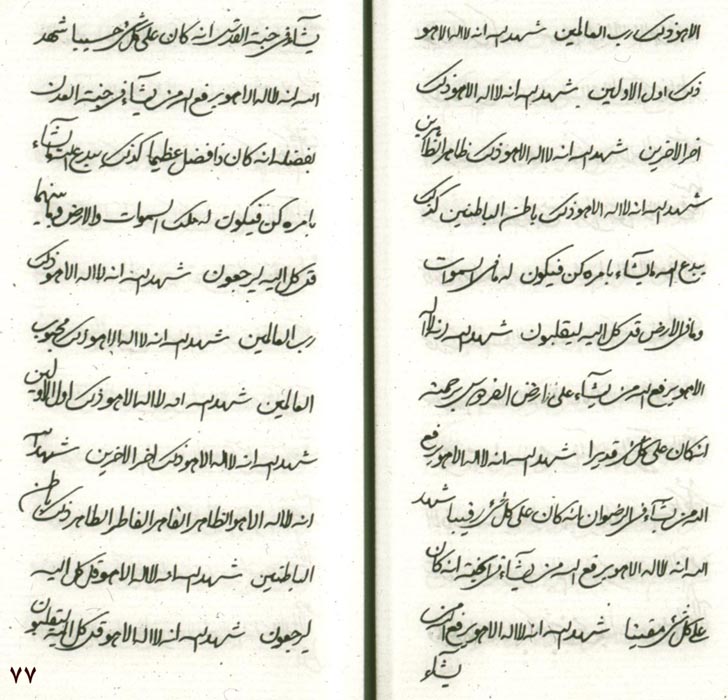 الا هو ذلك رب العالمين شهد الله انه لا اله الا هو
ذلك اول الاولين شهد الله انه لا اله الا هو ذلك
اخر الاخرين شهد الله انه لا اله الا هو ذلك ظاهر الظاهرين
شهد الله انه لا اله الا هو ذلك باطن الباطنين كذلك
يبدع الله ما يشاء بامره كن فيكون له ما في السموات
وما في الارض قل كل اليه لينقلبون شهد الله انه لا اله
الا هو يرفع الله من يشاء على ارض الفردوس برحمته
انه كان على كل شيء قديرا شهد الله انه لا اله الا هو يرفع
الله من يشاء في الرضوان انه كان على كل شيء رقيبا شهد
الله انه لا اله الا هو يرفع الله من يشاء في الجنة انه كان
على كل شيء مقيتا شهد الله انه لا اله الا هو يرفع الله من
يشاء
يشاء في جنة القدس انه كان على كل شيء حسيبا شهد
الله انه لا اله الا هو يرفع الله من يشاء في جنة العدن
بفضله انه كان ذا فضل عظيما كذلك يبدع الله ما يشاء
بامره كن فيكون له ملك السموات والارض وما بينهما
قل كل اليه ليرجعون شهد الله انه لا اله الا هو ذلك
رب العالمين شهد الله انه لا اله الا هو ذلك محبوب
العالمين شهد الله انه لا اله الا هو ذلك اول الاولين
شهد الله انه لا اله الا هو ذلك اخر الاخرين شهد الله
انه لا اله الا هو الظاهر القاهر الفاطر الطاهر ذلك باطن
الباطنين شهد الله انه لا اله الا هو قل كل اليه
ليرجعون شهد الله انه لا اله الا هو قل كل اليه لينقلبون
٧٧